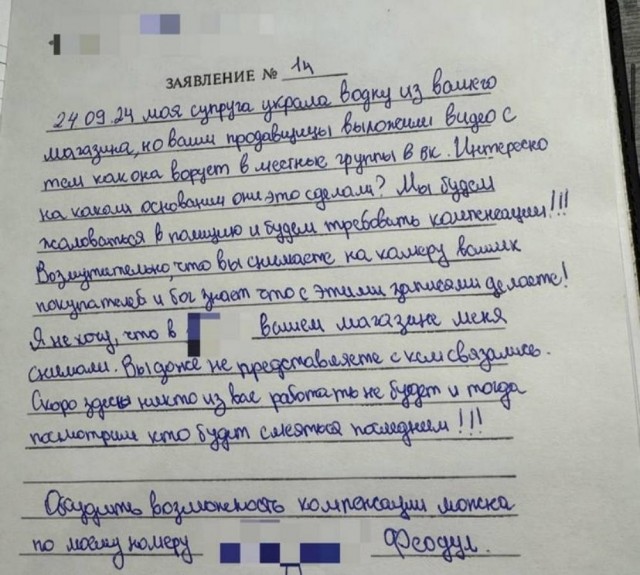 ЗАЯВЛЕНИЕ № 14
24.09.24 моя супруга украла водку из вашего
магазина, но ваши продавщицы выложили видео с
тем как она ворует в местные группы в вк. Интересно
на каком основании они это сделали? Мы будем
жаловаться в полицию и будем требовать компенсации!!!
Возмутительно, что вы снимаете на камеру ваших
покупателей и бог знает что с этими записями делаете!
Я не хочу, что в вашем магазине меня
снимали. Вы даже не представляете с кем связались.
Скоро здесь никто из вас работать не будет и тогда
посмотрим кто будет смеяться последнем!!!
Обсудить возможность компенсации можна
по моему номеру Феодул.